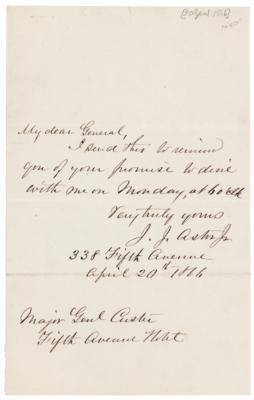 My dear General,
I send this to remind
you of your promise to dine
with me on Monday, at 6 o clk
Very truly yours
J. J. Astor Jr.
338 Fifth Avenue
April 20th 1866
Major Genl Custer
Fifth Avenue Hotel